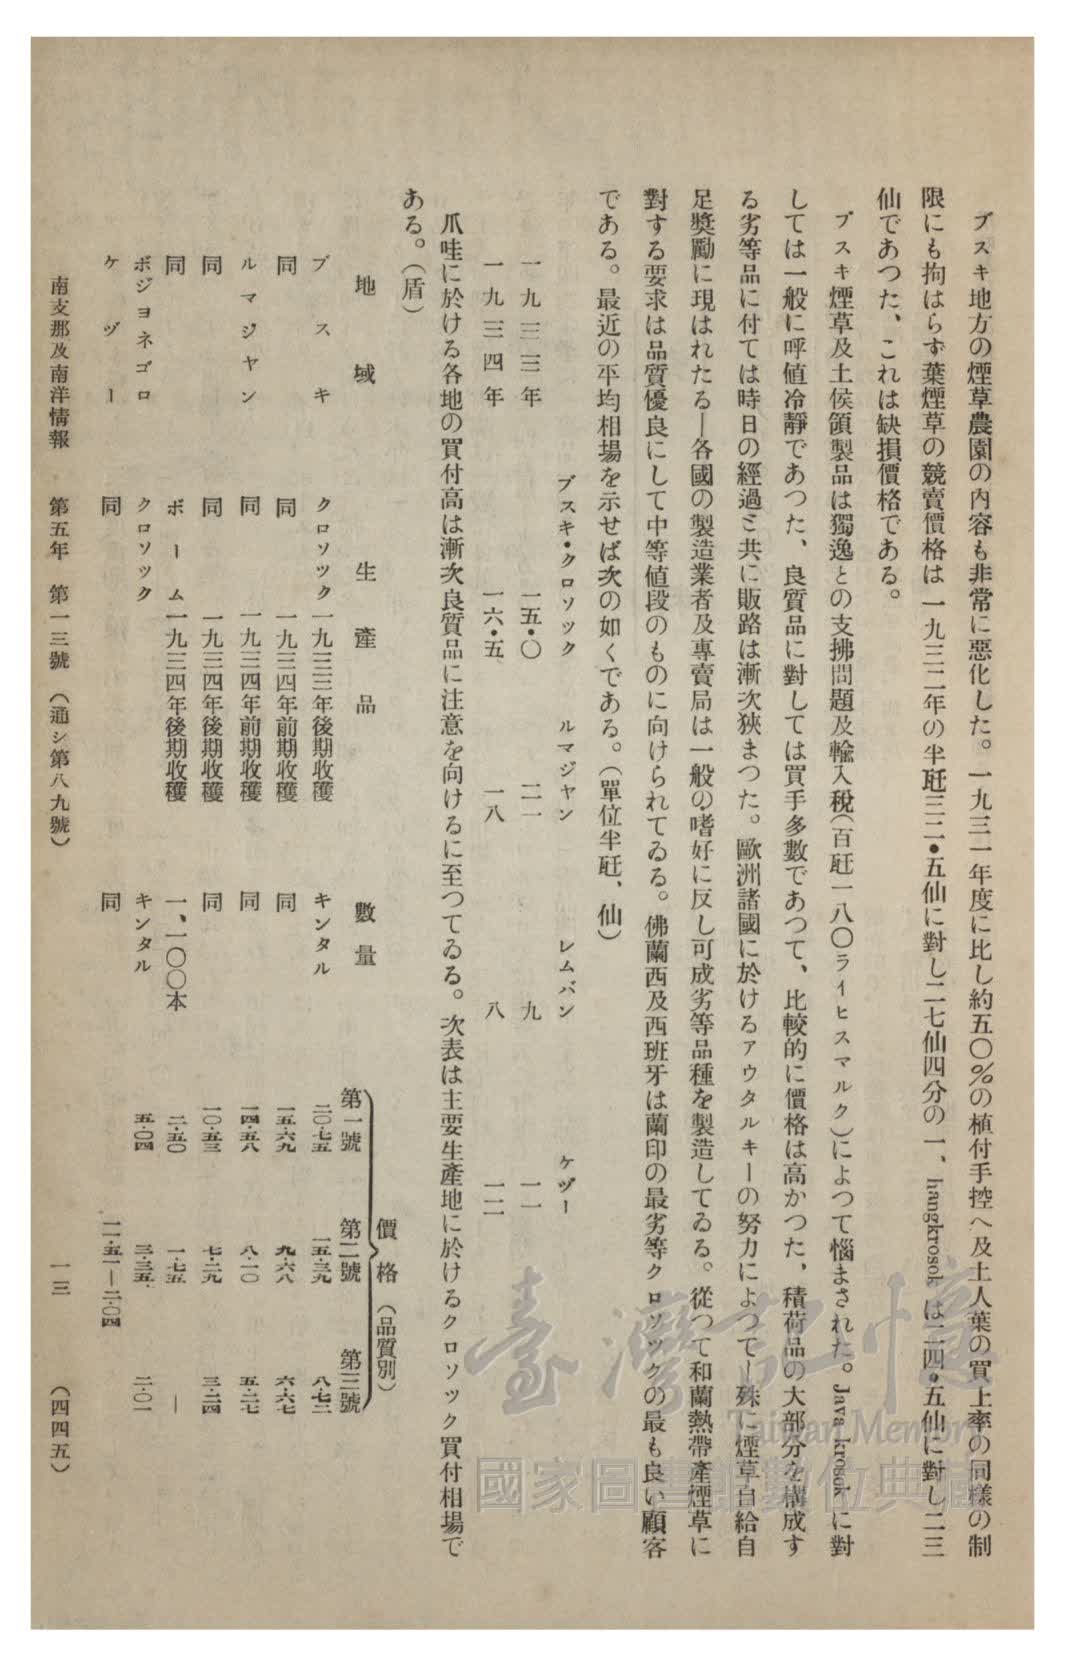 ブスキ地方の煙草農園の内容も非常に惡化した。一九三一年度に比し約五〇％の植付手控へ及土人葉の買上率の同樣の制
限にも拘はらず葉煙草の競賣價格は一九三二年の半瓩三二•五仙に對し二七仙四分の一、hangkrosok は二四•五仙に對し二三
仙であつた、これは缺損價格である。
ブスキ煙草及土侯領製品は獨逸との支拂問題及輸入稅(百瓩一八〇ライヒスマルク)によつて惱まされた。Java krosok に對
しては一般に呼値冷靜であつた、良質品に對しては買手多數であつて、比較的に價格は高かつた、積荷品の大部分を構成す
る劣等品に付ては時日の經過と共に販路は漸次狹まつた。歐洲諸國に於けるアウタルキーの努力によつて—殊に煙草自給自
足獎勵に現はれたる—各國の製造業者及專賣局は一般の嗜好に反し可成劣等品種を製造してゐる。從つて和蘭熱帶產煙草に
對する要求は品質優良にして中等値段のものに向けられてゐる。佛蘭西及西班牙は蘭印の最劣等クロソックの最も良い顧客
である。最近の平均相場を示せば次の如くである。(單位半瓩、仙)
ブスキ•クロソック ルマジヤン レムバン ケヅー
一九三三年 一五•〇 二一 九 一一
一九三四年 一六•五 一八 八 一二
爪哇に於ける各地の買付高は漸次良質品に注意を向けるに至つてゐる。次表は主要生產地に於けるクロソック買付相場で
ある。(盾)
價格(品質別)
地域 生產品 數量 第一號 第二號 第三號
ブスキ クロソック一九三三年後期收穫 キンタル 二〇•七五 一五•三九 八•七二
同 同 一九三四年前期收穫 同 一五•六九 九•六八 六•六七
ルマジヤン 同 一九三四年前期收穫 同 一四•五八 八•一〇 五•二七
同 同 一九三四年後期收穫 同 一〇•五三 七•二九 三•二四
同 ボーム一九三四年後期收穫 一、一〇〇本 二•五〇 一•七五 —
ボジヨネゴロ クロソック キンタル 五•〇四 三•三五 二•〇一
ケヅー 同 同 二•五一—二•〇四
南支那及南洋情報 第五年 第一三號 (通シ第八九號) 一三 (四四五)
臺灣記憶
Taiwan Memory
國家圖書館數位典藏